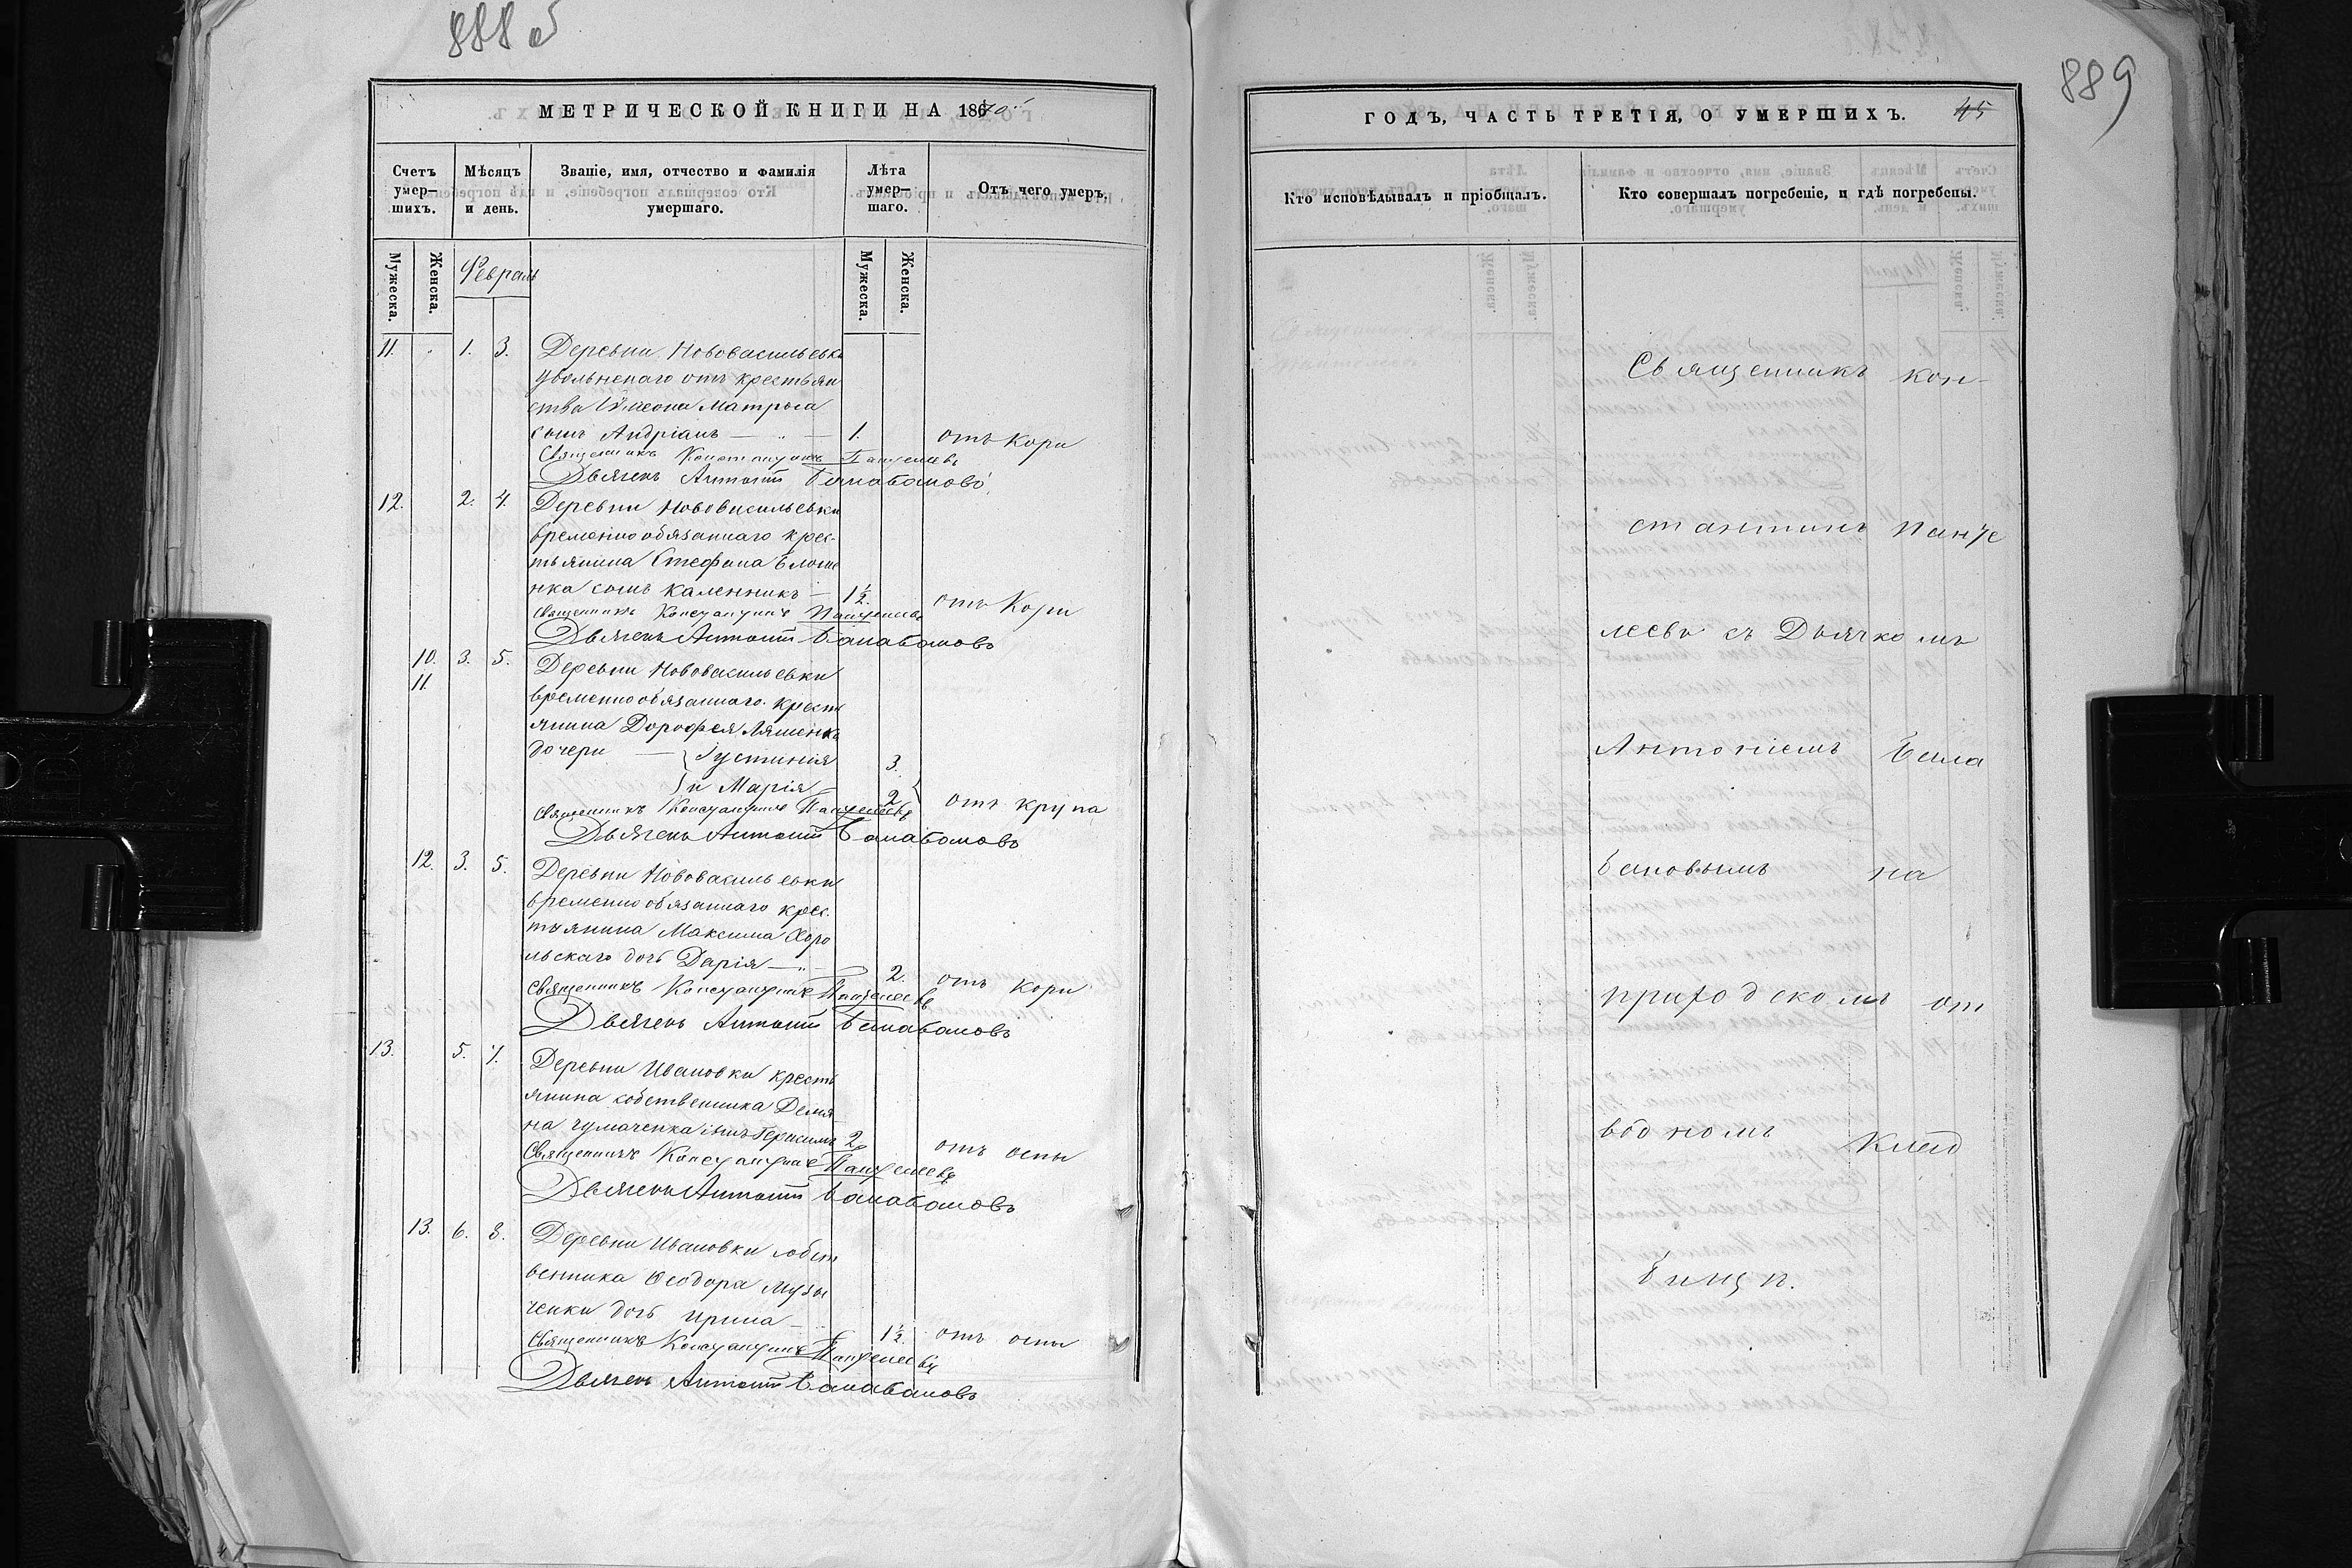 888 об
МЕТРИЧЕСКОЙ КНИГИ НА 1870й
Счетъ умер— шихъ.
Мѣсяцъ и день.
Званіе, имя, отчество и фамилія умершаго.
Лѣта умер— шаго.
Отъ чего умеръ.
Мужеска.
Женска.
Февраль
Мужеска.
Женска.
11. 1. 3. Деревни Нововасильевки
увольненаго отъ крестьян
ства Симеона Матрыса
сынъ Андріанъ — 1. отъ Кори
Священникъ Константинъ Пантелеевъ
Дьячекъ Антоній Балабановъ
12. 2. 4. Деревни Нововасильевки
временнообязаннаго крес-
тьянина Стефана
нка сынъ Каленникъ — 1½. отъ Кори
Священникъ Константинъ Пантелеевъ
Дьячекъ Антоній Балабановъ
10. 3. 5. Деревни Нововасильевки
11. временнообязаннаго крестъ
янина Дорофея Ляшенка
дочери — Іустинія 3.
и Марія — 2 отъ крупа
Священникъ Константинъ Пантелеевъ
Дьячекъ Антоній Балабановъ
12. 3. 5. Деревни Нововасильевки
временнообязаннаго крес-
тьянина Максима Хоро
льскаго дочь Дарія — 2. отъ кори
Священникъ Константинъ Пантелеевъ
Дьячекъ Антоній Балабановъ
13. 5. 7. Деревни Ивановки кресть
янина собственника Демья
на Чумаченка сынъ Герасимъ 2 отъ оспы
Священникъ Константинъ Пантелеевъ
Дьячекъ Антоній Балабановъ
13. 6. 8. Деревни Ивановки собст
венника Ѳеодора Музы
ченки дочь Ирина — 1½. отъ оспы
Священникъ Константинъ Пантелеевъ
Дьячекъ Антоній Балабановъ
889
ГОДЪ, ЧАСТЬ ТРЕТІЯ, О УМЕРШИХЪ. 45
Кто исповѣдывалъ и пріобщалъ.
Кто совершалъ погребеніе, и гдѣ погребены.
Священникъ Кон-
стантинъ Панте
леевъ съ Дьячкомъ
Антоніемъ Бала
бановымъ на
приходскомъ от
водномъ Клад
бищѣ.